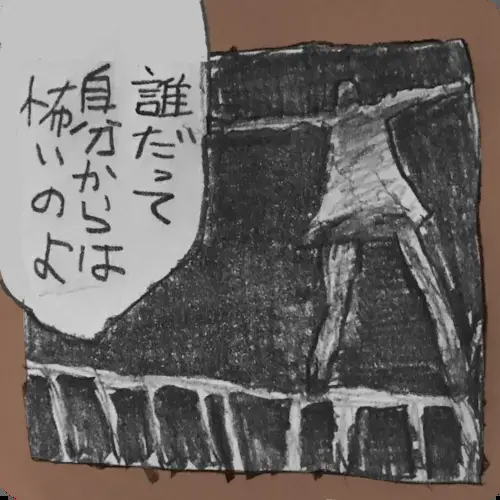 誰だって
自分からは
怖いのよ